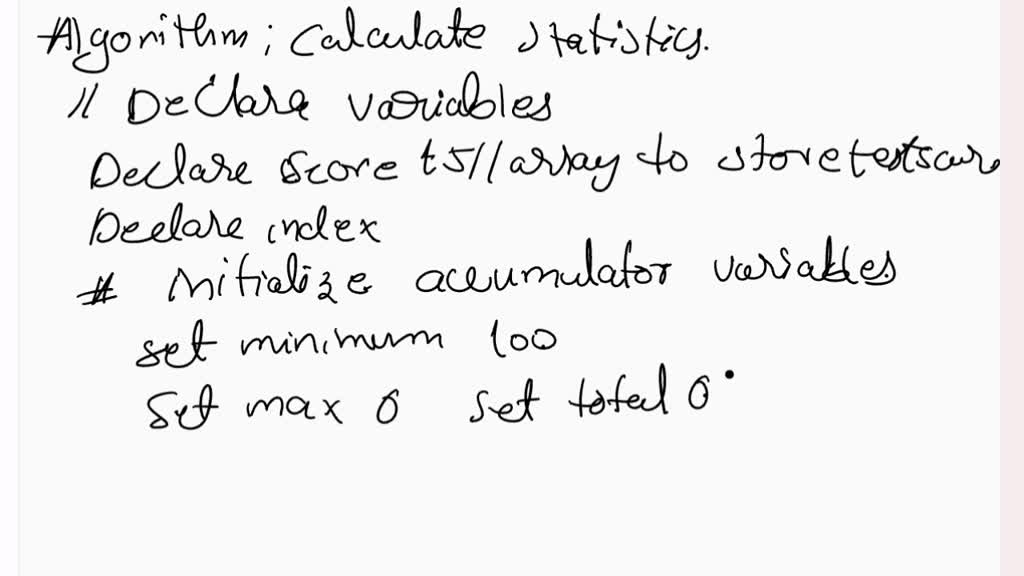 Algorithm; Calculate statistics.
// Declare variables
Declare Score t5 // array to store testscore
Declare index
# initialize accumulator variables.
set minimum 100
Set max 0 set total 0